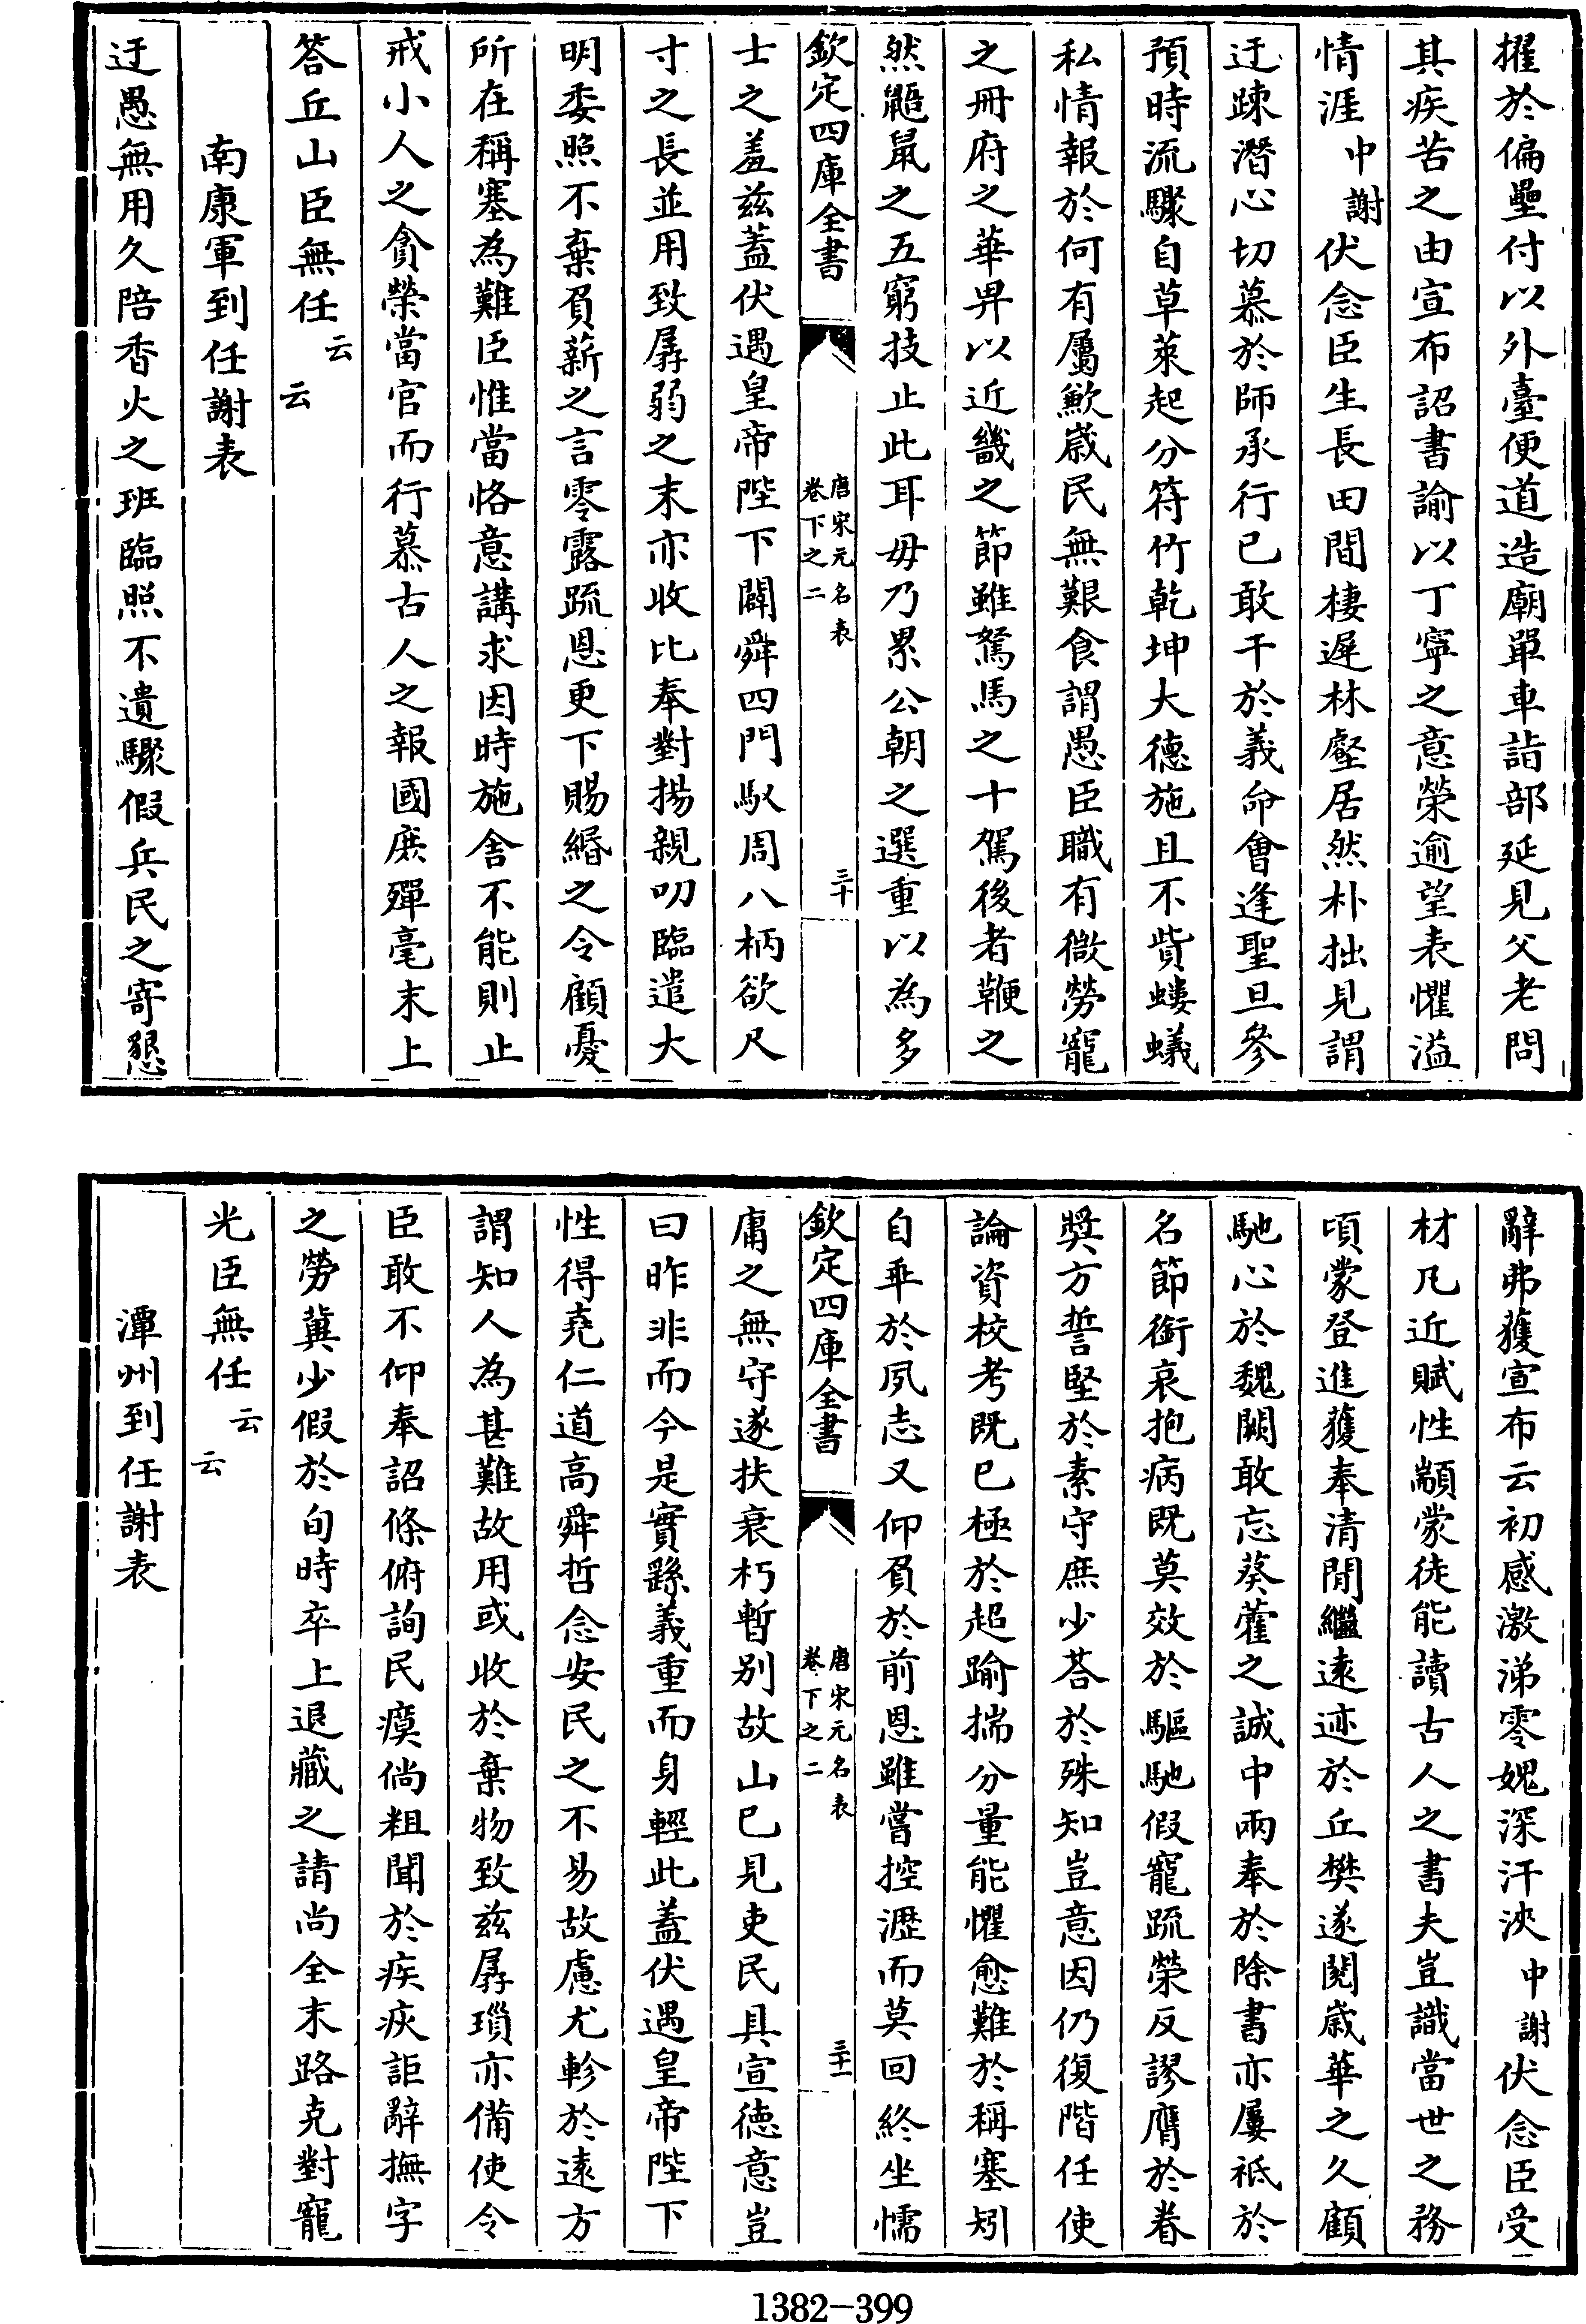 擢於偏壘付以外臺便道造廟單車詣部延見父老問
其疾苦之由宣布詔書諭以丁寧之意榮逾望表懼溢
情涯中謝伏念臣生長田間棲遲林壑居然朴拙見謂
迂疎潛心切慕於師承行已敢干於義命會逢聖旦參
預時流驟自草萊起分符竹乾坤大德施且不貲螻蟻
私情報於何有屬歉歲民無艱食謂愚臣職有微勞寵
之冊府之華畀以近畿之節雖駑馬之十駕後者鞭之
然鼯鼠之五窮技止此耳毋乃累公朝之選重以為多
欽定四庫全書 唐宋元名表 卷下之二 三十
士之羞兹蓋伏遇皇帝陛下闢舜四門馭周八柄欲尺
寸之長並用致孱弱之末亦收比奉對揚親叨臨遣大
明委照不棄負薪之言零露疏恩更下賜緡之令顧憂
所在稱塞為難臣惟當恪意講求因時施舍不能則止
戒小人之貪榮當官而行慕古人之報國庶殫毫末上
答丘山臣無任云云
南康軍到任謝表
迂愚無用久陪香火之班臨照不遺驟假兵民之寄懇
辭弗獲宣布云初感激涕零媿深汗浹中謝伏念臣受
材凡近賦性顓蒙徒能讀古人之書夫豈識當世之務
頃蒙登進獲奉清閒繼遠迹於丘樊遂閱歲華之久顧
馳心於魏闕敢忘葵藿之誠中兩奉於除書亦屢祇於
名節銜哀抱病既莫效於驅馳假寵疏榮反謬膺於眷
奬方誓堅於素守庶少荅於殊知豈意因仍復階任使
論資校考既已極於超踰揣分量能懼愈難於稱塞矧
自乖於夙志又仰負於前恩雖嘗控瀝而莫回終坐懦
欽定四庫全書 唐宋元名表 卷下之二 三十一
庸之無守遂扶衰朽暫别故山已見吏民具宣德意豈
曰昨非而今是實繇義重而身輕此蓋伏遇皇帝陛下
性得堯仁道高舜哲念安民之不易故慮尤軫於遠方
謂知人為甚難故用或收於棄物致兹孱瑣亦備使令
臣敢不仰奉詔條俯詢民瘼倘粗聞於疾疢詎辭撫字
之勞冀少假於旬時卒上退藏之請尚全末路克對寵
光臣無任云云
潭州到任謝表
1382-399